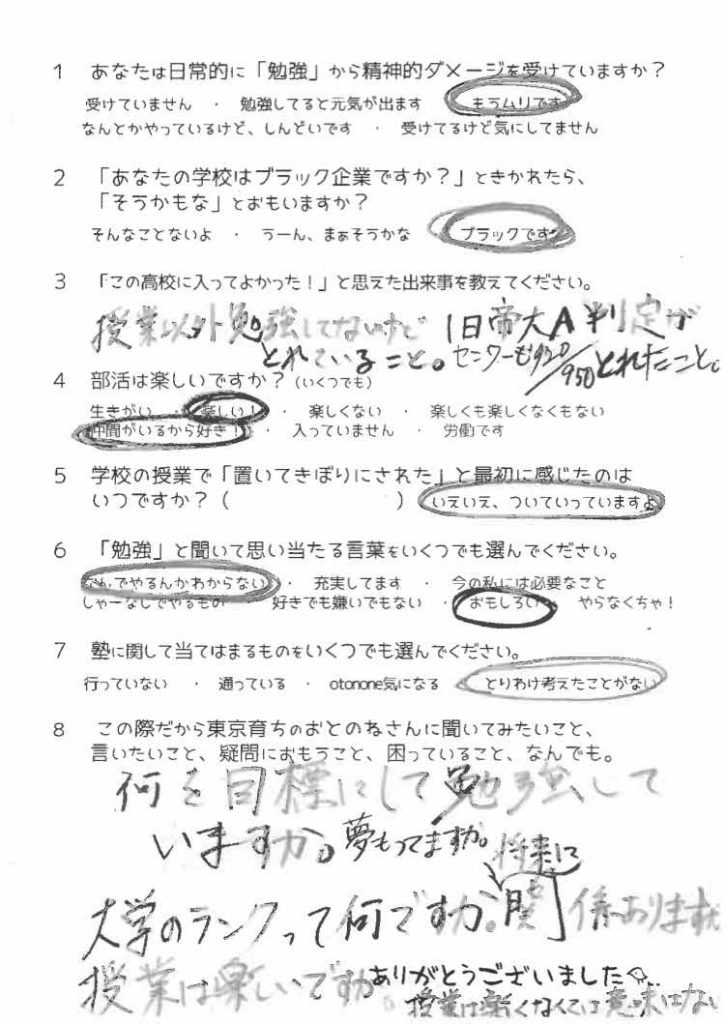 1 あなたは日常的に「勉強」から精神的ダメージを受けていますか？
受けていません ・ 勉強してると元気が出ます ・ もうムリです
なんとかやっているけど、しんどいです ・ 受けてるけど気にしてません
2 「あなたの学校はブラック企業ですか？」ときかれたら、
「そうかもな」とおもいますか？
そんなことないよ ・ うーん、まぁそうかな ・ ブラックです
3 「この高校に入ってよかった！」と思えた出来事を教えてください。
授業以外勉強してないけど 旧帝大A判定が
とれていること。センターも930/950とれたこと。
4 部活は楽しいですか？（いくつでも）
生きがい ・ 楽しい！ ・ 楽しくない ・ 楽しくも楽しくなくもない
仲間がいるから好き！ ・ 入っていません ・ 労働です
5 学校の授業で「置いてきぼりにされた」と最初に感じたのは
いつですか？（ ） いえいえ、ついていっていますよ
6 「勉強」と聞いて思い当たる言葉をいくつでも選んでください。
なんでやるんかわからない ・ 充実してます ・ 今の私には必要なこと
しゃーなしでやるもの ・ 好きでも嫌いでもない ・ おもしろい ・ やらなくちゃ！
7 塾に関して当てはまるものをいくつでも選んでください。
行っていない ・ 通っている ・ otonone気になる ・ とりわけ考えたことがない
8 この際だから東京育ちのおとのねさんに聞いてみたいこと、
言いたいこと、疑問におもうこと、困っていること、なんでも。
何を目標にして勉強して
いますか。夢もってますか。
将来に
大学のランクって何ですか。関係あります
授業は楽しいですか。ありがとうございました
授業は楽しくなくては意味はない